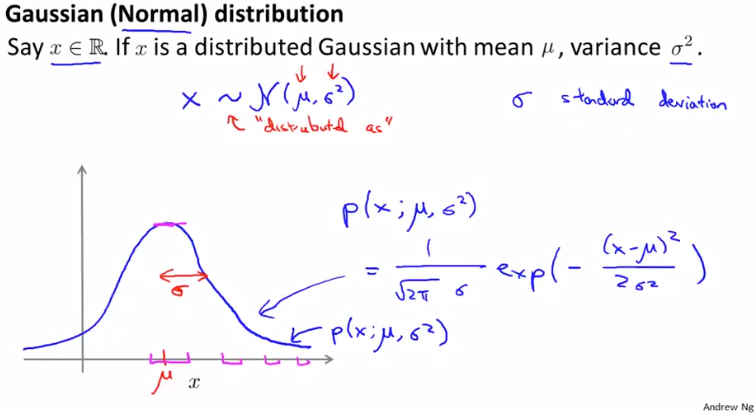 Gaussian (Normal) distribution
Say x ∈ ℝ. If x is a distributed Gaussian with mean μ, variance σ².
x ~ N(μ, σ²)
σ standard deviation
"distributed as"
p(x; μ, σ²)
= 1/(√2π σ) exp(- (x-μ)²/2σ²)
σ
p(x; μ, σ²)
μ x
Andrew Ng